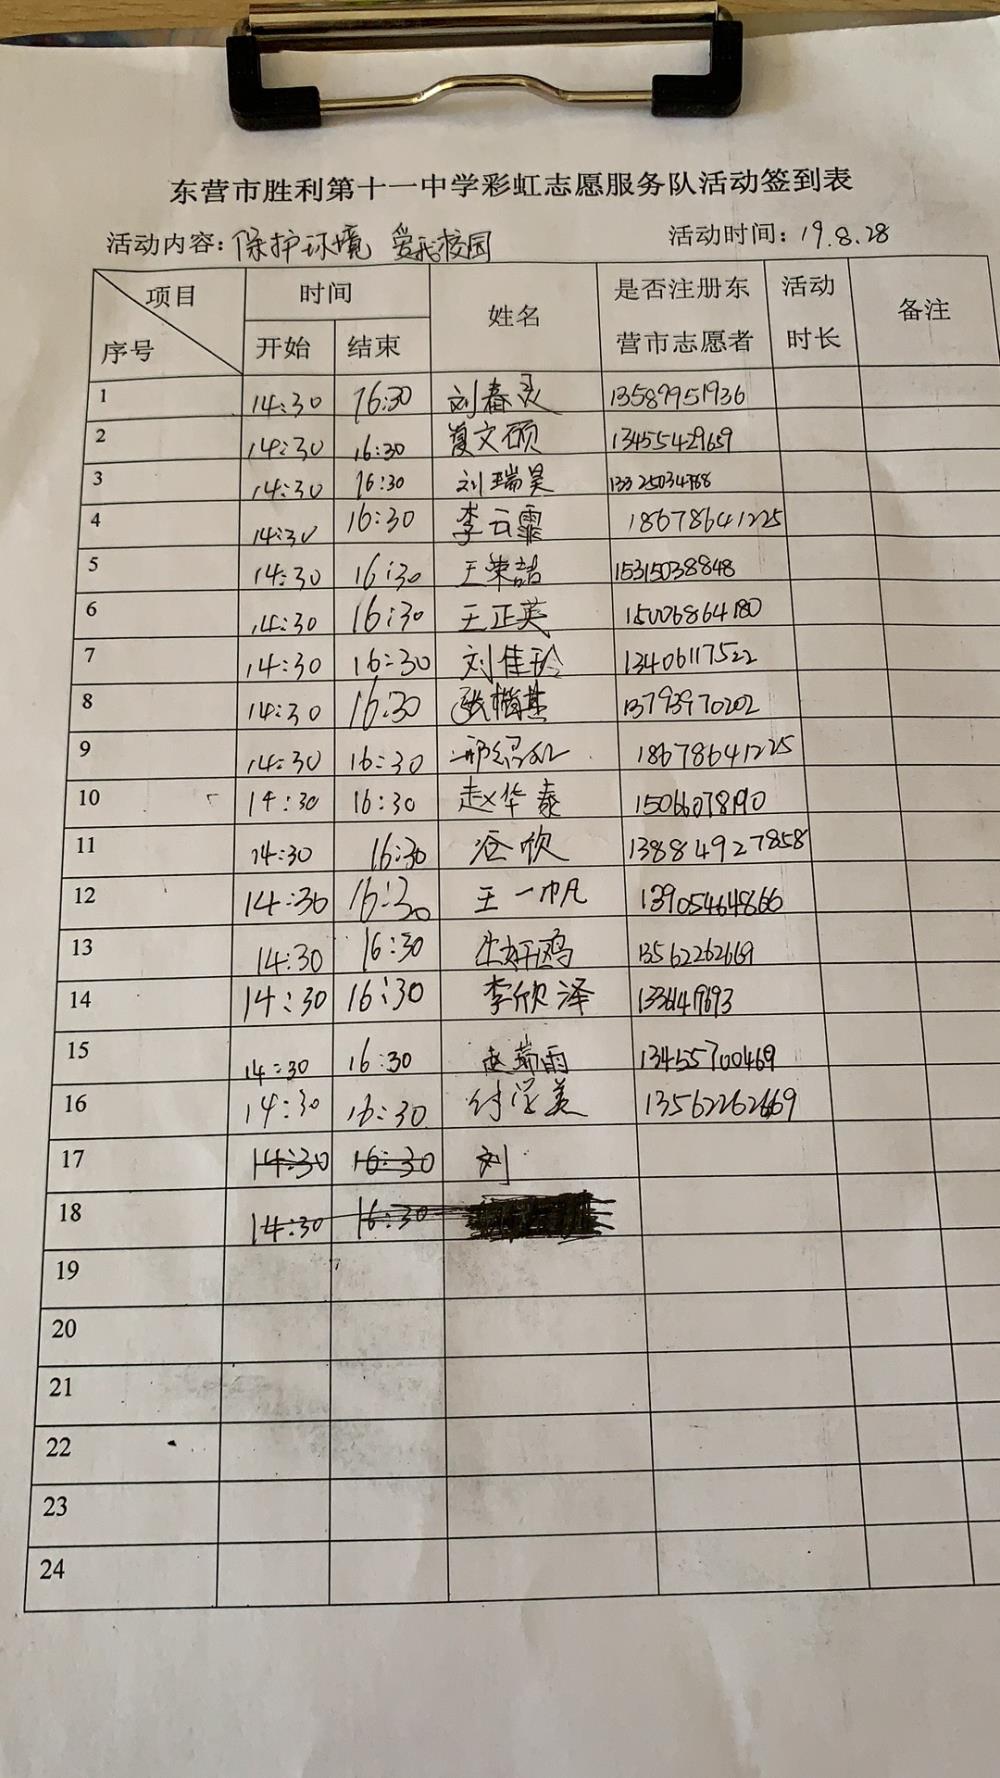 东营市胜利第十一中学彩虹志愿服务队活动签到表
活动内容：保护环境 爱我校园 活动时间：19.8.28
项目 时间 姓名 是否注册东营市志愿者 活动时长 备注
序号 开始 结束
1 14:30 16:30 刘春灵 13589951936
2 14:30 16:30 夏文硕 13455429659
3 14:30 16:30 刘瑞昊
4 14:30 16:30 李云霏 18678641225
5 14:30 16:30 王荣喆 15315038848
6 14:30 16:30 王正英 15006864180
7 14:30 16:30 刘佳玲 13406117522
8 14:30 16:30 张楷基 13793970202
9 14:30 16:30 18678641225
10 14:30 16:30 赵华泰 15066078190
11 14:30 16:30 谷欣 13884927858
12 14:30 16:30 王一帆 139054648666
13 14:30 16:30 13562262669
14 14:30 16:30 李欣泽
15 14:30 16:30 赵瑞雨 13455700469
16 14:30 16:30 付学美 13562262669
17 14:30 16:30 刘
18 14:30 16:30
19
20
21
22
23
24